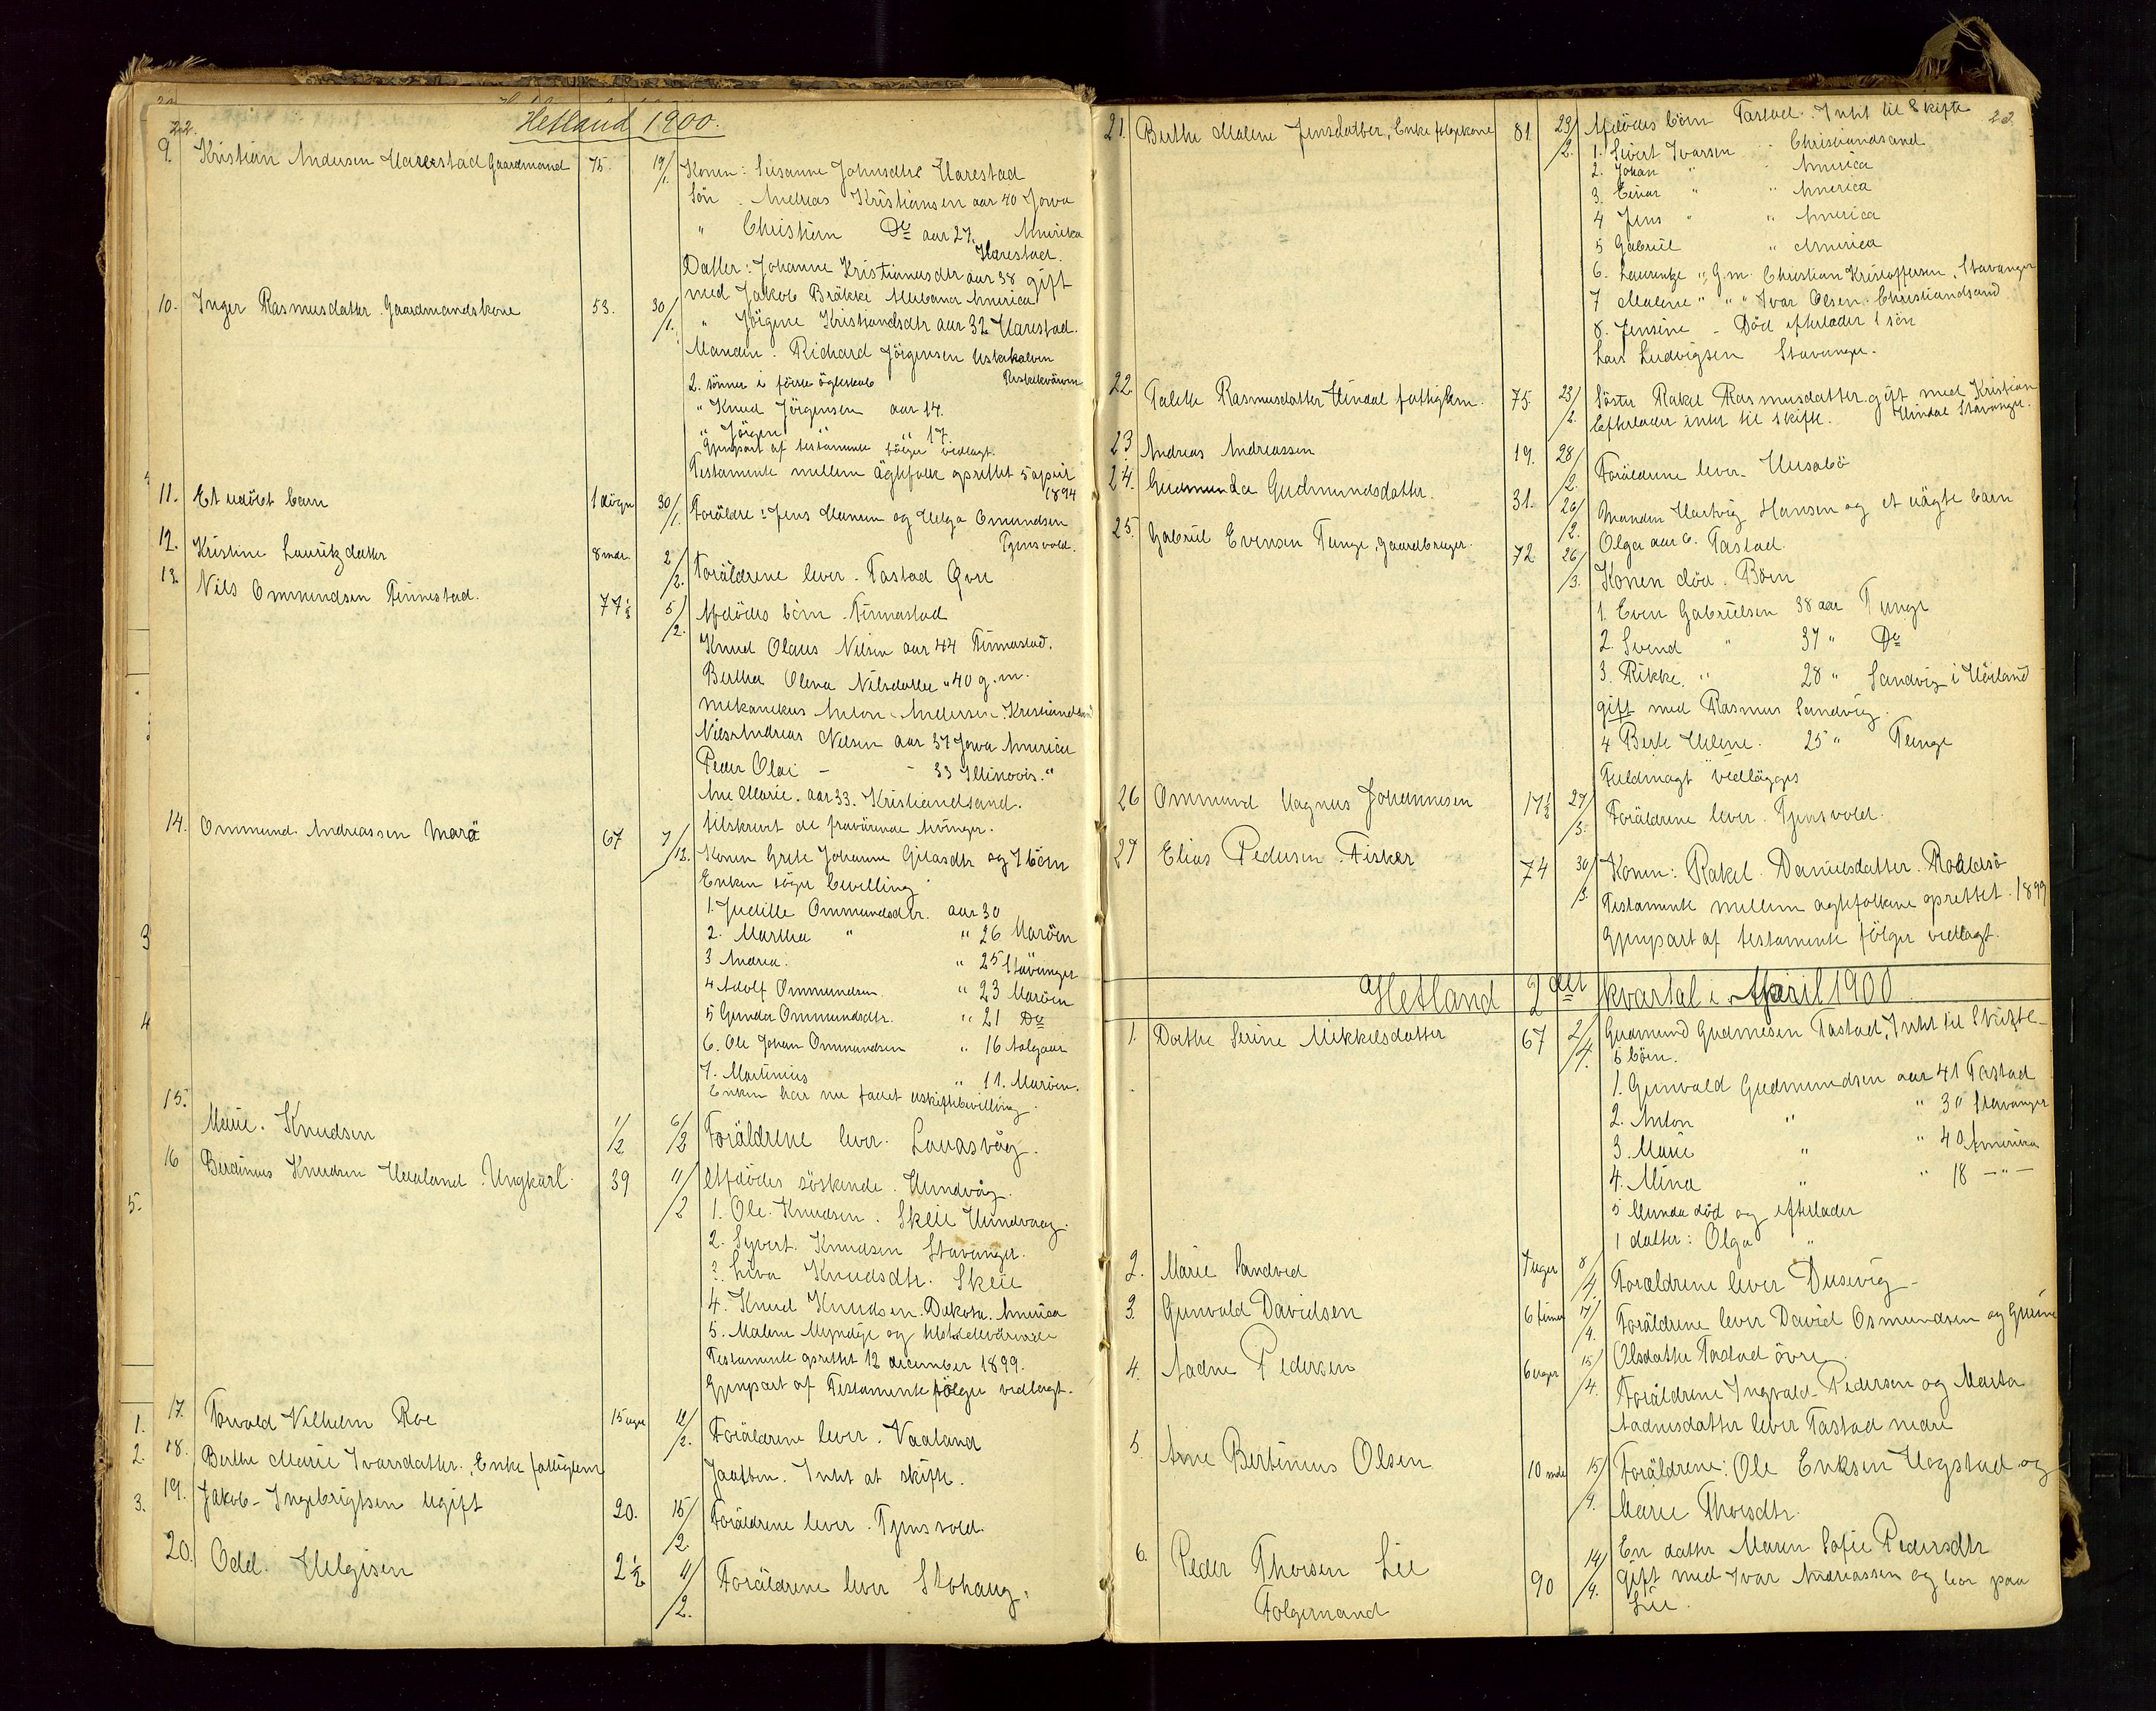 22.
Hetland 1900.
9. Kristian Andersen Harestad Gaardmand 75. 19/1. Konen: Susanne Johnsdtr Harestad
Sön. Andreas Kristiansen aar 40 Jowa
" Christian Do aar 27. Amerika
Harestad.
Datter: Johanne Kristiansdtr aar 38 gift
med Jakob Bräkke America
" Jörgine Kristiansdtr aar 32 Harestad.
10. Inger Rasmusdatter Gaardmandskone 53. 30/1. Manden: Richard Jörgensen
2. sönner i förste ägteskab
" Knud Jörgensen aar 14.
" Jörgen " " 17.
Gjenpart af testamente fölger vedlagt.
Testamente mellem ägtefolk oprettet 5 april
1894
11. Et udöbt barn 1 dögn 30/1. Foräldre: Jens Hansen og Helga Omundsen
Tjensvold.
12. Kristine Lauritzdatter 8 mdr. 2/2. Foräldrene lever. Tastad Övre
13. Nils Ommundsen Finnestad. 77½ 5/2. Afdödes börn. Finnestad
Knud Olaus Nilsen aar 44 Finnestad.
Bertha Olena Nilsdatter " 40 g.m.
mekanikus Anton Andersen. Kristiandsand
Nils Andreas Nilsen aar 37 Jowa America
Peder Olai - - 33 Illinois. "
Ane Marie. aar 33. Kristiandsand.
tilskrevet de fravärende arvinger.
14. Ommund Andreassen Marö 67 7/12. Konen Grete Johanne Giliasdtr og 7 börn
Enken söger bevilling
1. Judille Ommundsdtr. aar 30
2. Martha " " 26 Maröen
3 Andrea. " 25 Stavanger
4 Adolf Ommundsen " 23 Maröen
5 Gunda Ommundsdtr. " 21 Do
6. Ole Johan Ommundsen " 16 Aalgaar
7. Martinius " 11. Maröen.
Enken har nu faaet uskiftebevilling.
15. Marie. Knudsen 1/2 6/2 Foräldrene lever. Lauasvåg.
16 Berdinus Knudsen Haaland. Ungkarl. 39 11/2 Afdödes söskende. Hundvåg.
1. Ole. Knudsen. Skeie Hundvaag.
2. Syvert. Knudsen Stavanger.
3. Liva Knudsdtr. Skeie
4. Knud Knudsen. Dakota. America
5. Malene Myndige og
Testamente oprettet 12 december 1899.
Gjenpart af Testamente fölger vedlagt.
17. Torvald Vilhelm Roe 15 uger 12/2. Foräldrene lever. Vaaland
18. Berthe Marie Ivarsdatter., Enke fattiglem Jaatten. Intet at skifte.
19. Jakob Ingebrigtsen Ugift 20. 15/2 Foräldrene lever. Tjensvold.
20. Odd. Helgesen 2½ 11/2. Foräldrene lever Stohaug.
3
4
5.
1.
2.
3.
23.
21. Berthe Malene Jensdatter, Enke folgekone 81 23/2. Afdödes börn Tastad. Intet til Skifte
1. Sivert Ivarsen " Christiandsand
2. Johan " " America
3. Einar " " America
4 Jens " " America
5 Gabriel " America
6. Laurentze " G.m. Christian Kristoffersen, Stavanger
7 Malene " " " Ivar Olsen. Christiandsand
8. Jensine - Död efterlader 1 sön
Lars Ludvigsen Stavanger.
22. Talette Rasmusdatter Hindal fattiglem. 75. 23/2. Söster Rakel Rasmusdatter gift med Kristian
Efterlader intet til skifte. Hindal Stavanger.
23. Andreas Andreassen 19. 28/2. Foräldrene lever. Husabö
24. Gudmunda Gudmundsdatter. 31. 26/2. Manden Hartvig Hansen og et uägte barn
Olga aar 6. Tastad.
25. Gabriel Evensen Tunge, gaardbruger. 72 26/3. Konen död. Börn
1. Even Gabrielsen 38 aar Tunge
2. Svend " 37 " Do
3. Rikke. " 28 " Sandvig i Höiland
gift med Rasmus Sandvig.
4 Berte Helene. 25 " Tunge
Fuldmagt vedlägges
26 Ommund Magnus Johannesen 17½ 27/3. Foräldrene lever. Tjensvold.
27 Elias Pedersen. Fisker 74 30/3. Konen: Rakel. Danielsdatter. Roaldsö
Testamente mellem ägtefolkene oprettet. 1899
Gjenpart af testamente fölger vedlagt.
Hetland 2det kvartal i April 1900
1. Dorthe Serine Mikkelsdatter 67 2/4. Gudmund Gudmesen Tastad, Intet til Skifte
5 börn.
1. Gunvald Gudmundsen aar 41 Tastad
2. Anton " " 30 Stavanger
3. Marie " " 40 America
4. Mina " " 18 - " -
5 Munda död og efterlader
1 datter: Olga "
2. Marie Sandved 7 uger 8/4. Foraldrene lever Dusevig
3. Gunvald Davidsen 6 timer 17/4. Foräldrene lever David Osmundsen og Gurine
Olsdatter Tastad övre
4. Aadne Pedersen 6 uger 15/4. Foräldrene Ingvald Pedersen og Marta
Aadnesdatter lever Tastad nedre
5. Arne Bertinius Olsen 10 mdr 15/4. Foräldrene: Ole Eriksen Hogstad og
Marie Thorsdtr.
6. Peder Thorsen Lie 90 14/4. En datter Maren Sofie Pedersdtr
Folgemand gift med Ivar Andreassen og bor paa
Lie.